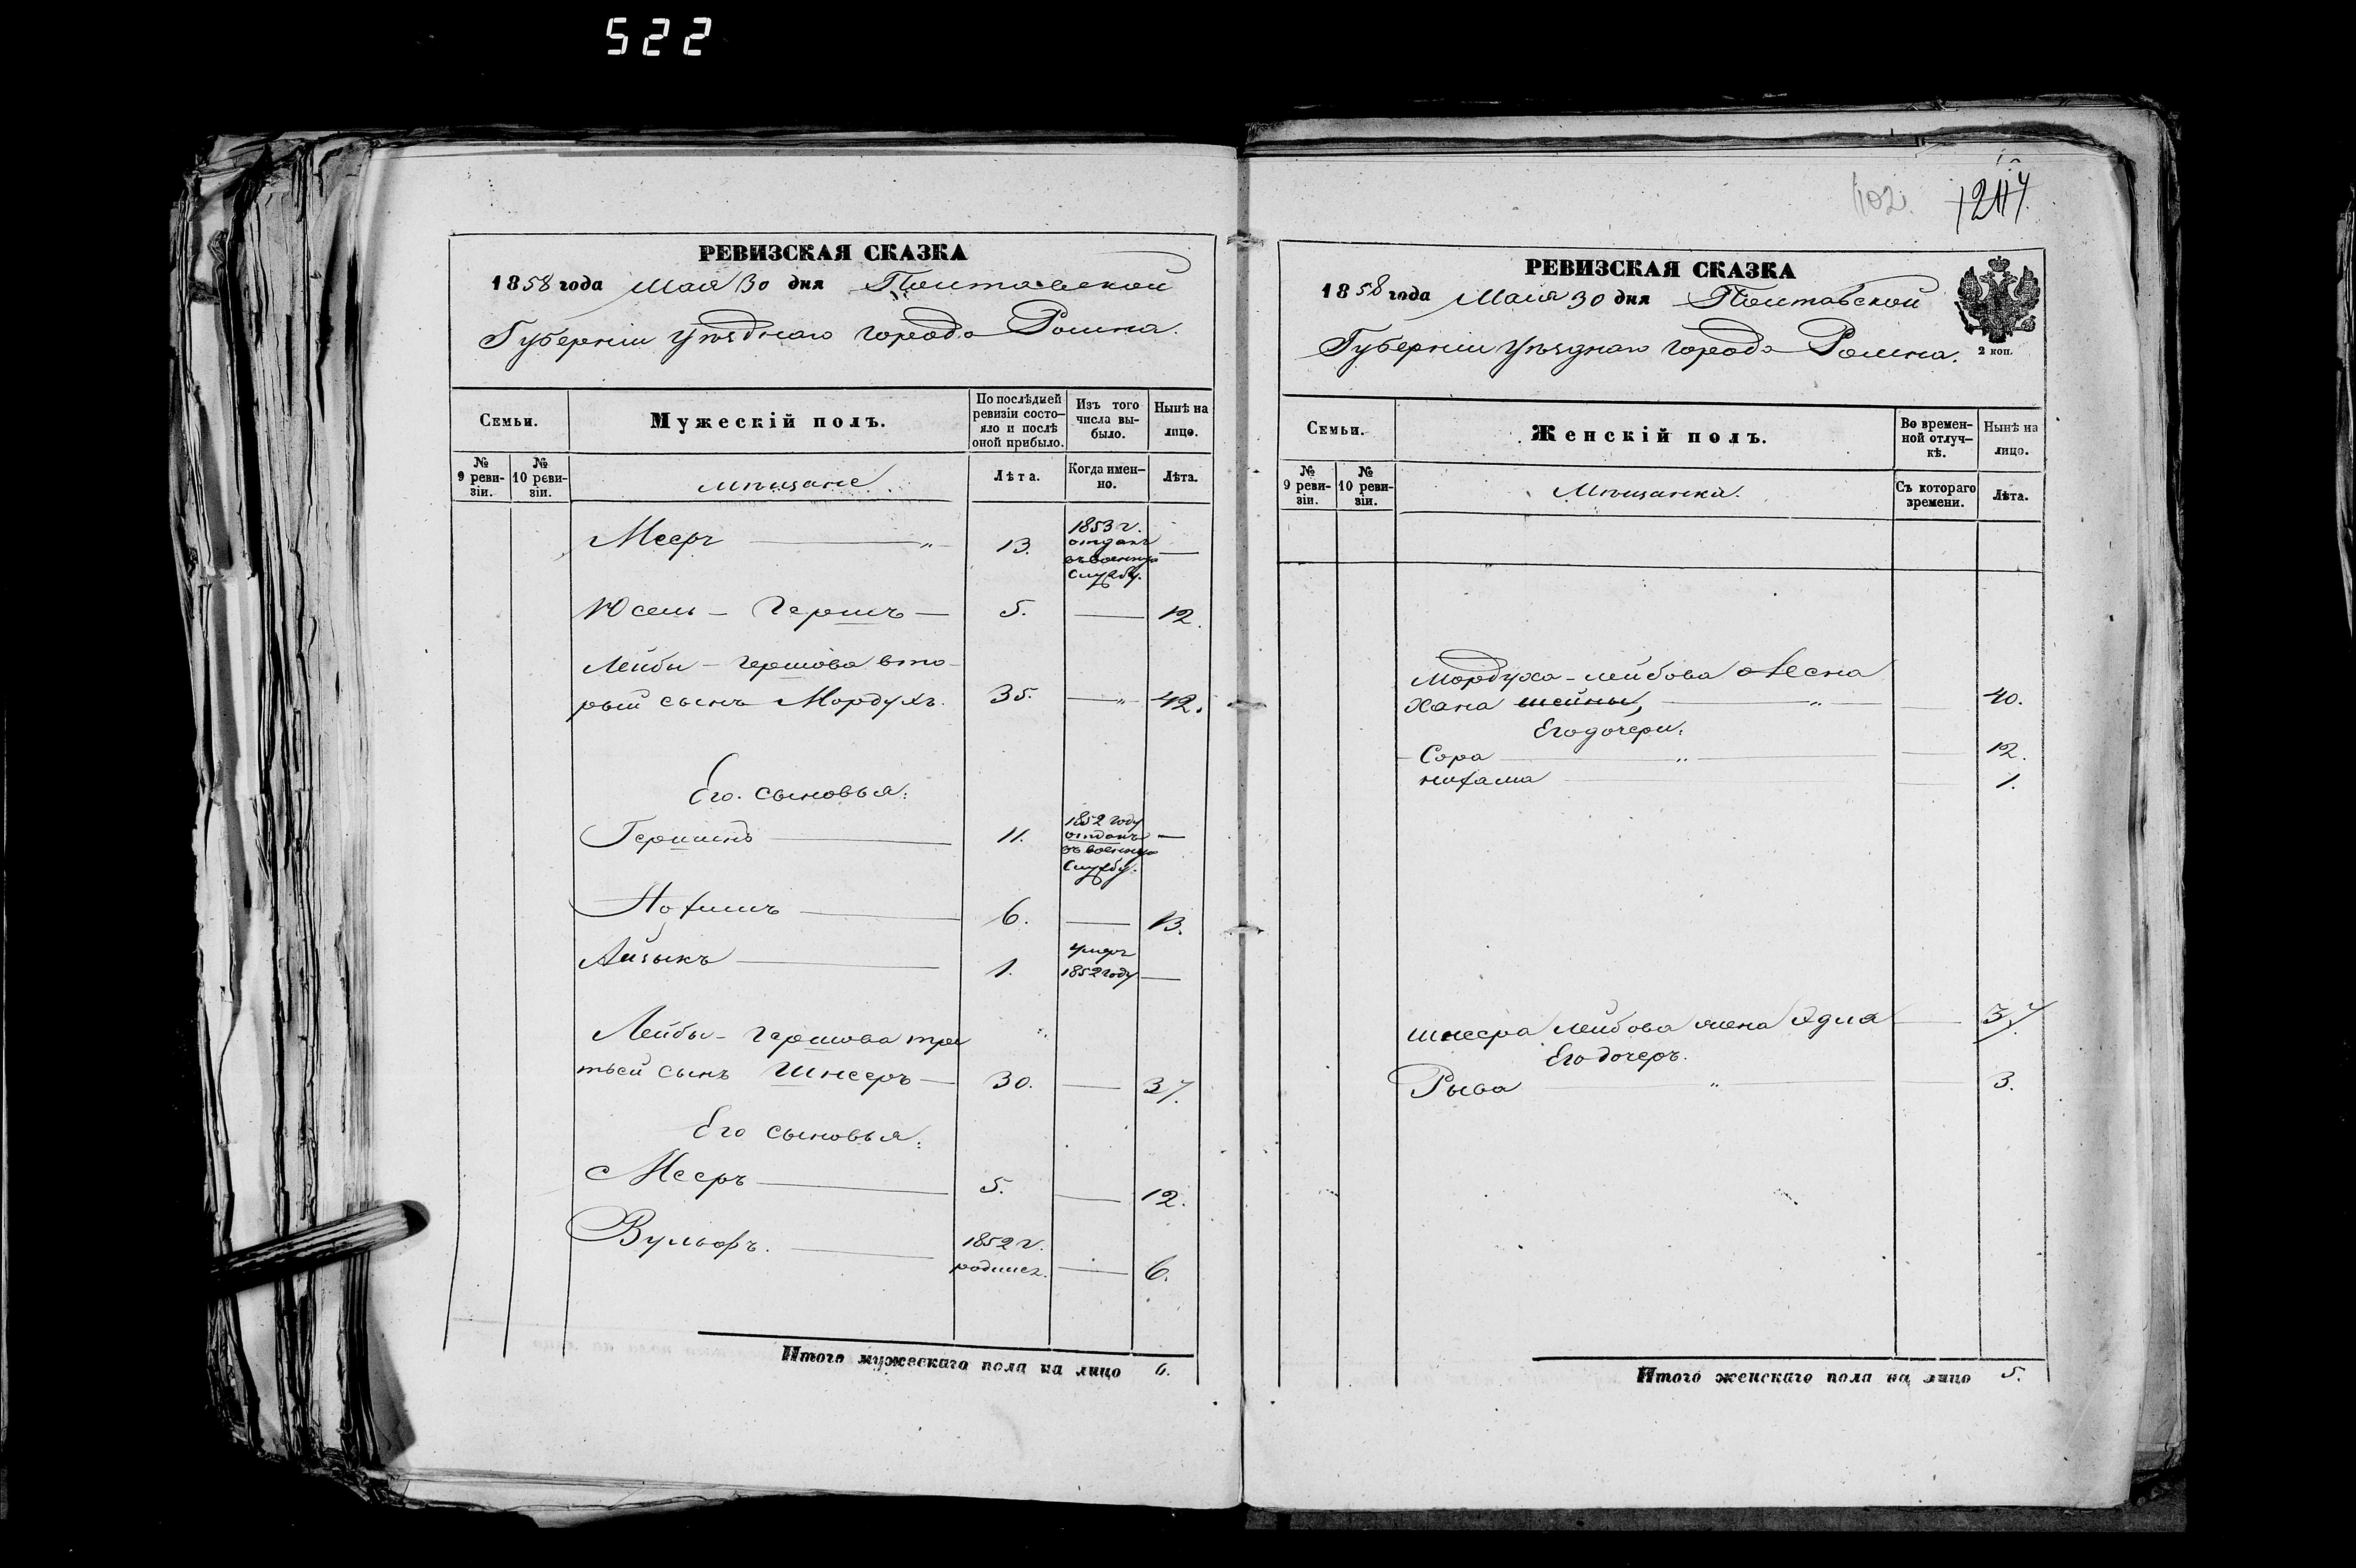 522
РЕВИЗСКАЯ СКАЗКА
1858 года Мая 30 дня Полтавской
Губерніи уѣзднаго города Ромна.
Семьи.
Мужескій полъ.
По послѣдней ревизіи состо-
яло и послѣ оной прибыло.
Изъ того числа вы-
было.
Нынѣ на лицо.
№ 9 реви-
зіи.
№ 10 реви-
зіи.
мѣщане.
Лѣта.
Когда имен-
но.
Лѣта.
Мееръ — „ 13. 1853 г. отданъ въ военную службу. —
Юсель - Гершъ — 5. — 12.
Лейбы - Гершова вто-
рый сынъ Мордухъ. 35. — „ 42.
Его сыновья:
Гершинъ — 11. 1852 году отданъ въ военную службу. —
Нохимъ — 6. — 13.
Айзыкъ — 1. умеръ 1852 году —
Лейбы - Гершова тре
тьей сынъ Шнееръ — 30. — 37.
Его сыновья:
Мееръ — 5. — 12.
Вульфъ. — 1852 г. родился. — 6.
Итого мужескаго пола на лицо 6.
102.
РЕВИЗСКАЯ СКАЗКА
1858 года Маія 30 дня Полтавской
Губерніи уѣзднаго города Ромна.
2 коп.
Семьи.
Женскій полъ.
Во времен-
ной отлуч-
кѣ.
Нынѣ на лицо.
№ 9 реви-
зіи.
№ 10 реви-
зіи.
Мѣщанки.
Съ котораго времени.
Лѣта.
Мордуха - лейбова жена
Хана шейны, — „ — 40.
Его дочери:
Сора — „ — 12.
нихама — 1.
шнеера лейбова жена Эдля — 37.
Его дочерь.
Рыва — „ — 3.
Итого женскаго пола на лицо 5.